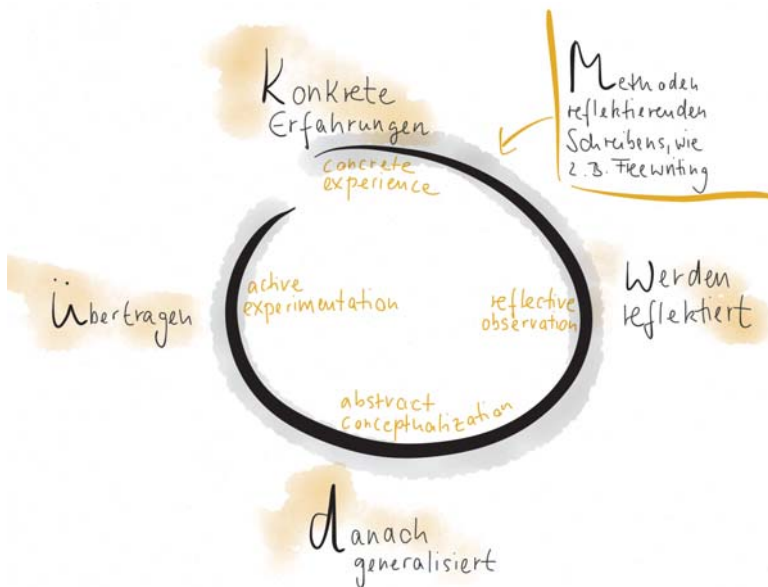 Konkrete
Erfahrungen
concrete
experience
Methoden
reflektierenden
Schreibens, wie
z.B. Freewriting
Werden
reflektiert
reflective
observation
abstract
conceptualization
danach
generalisiert
active
experimentation
Übertragen